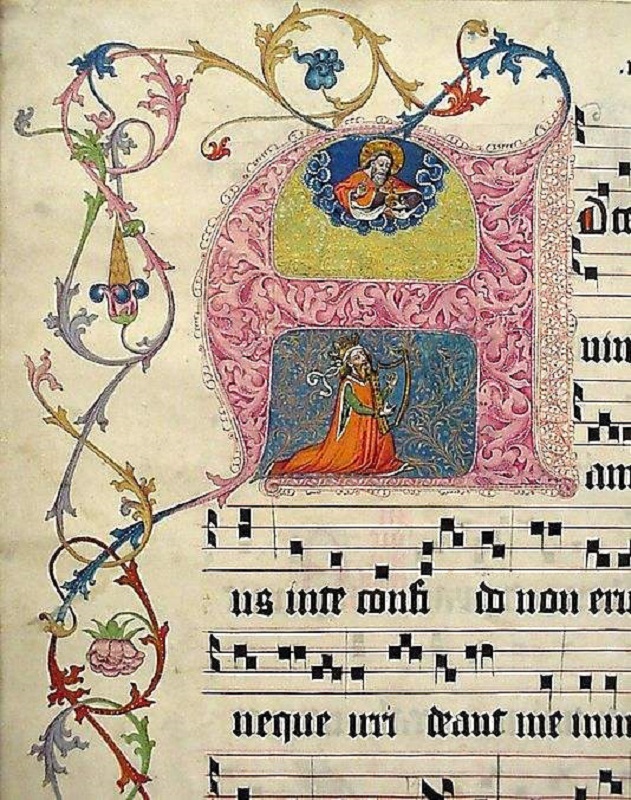 A
D te
am
us inte confi do non eru
neque irri deant me inim